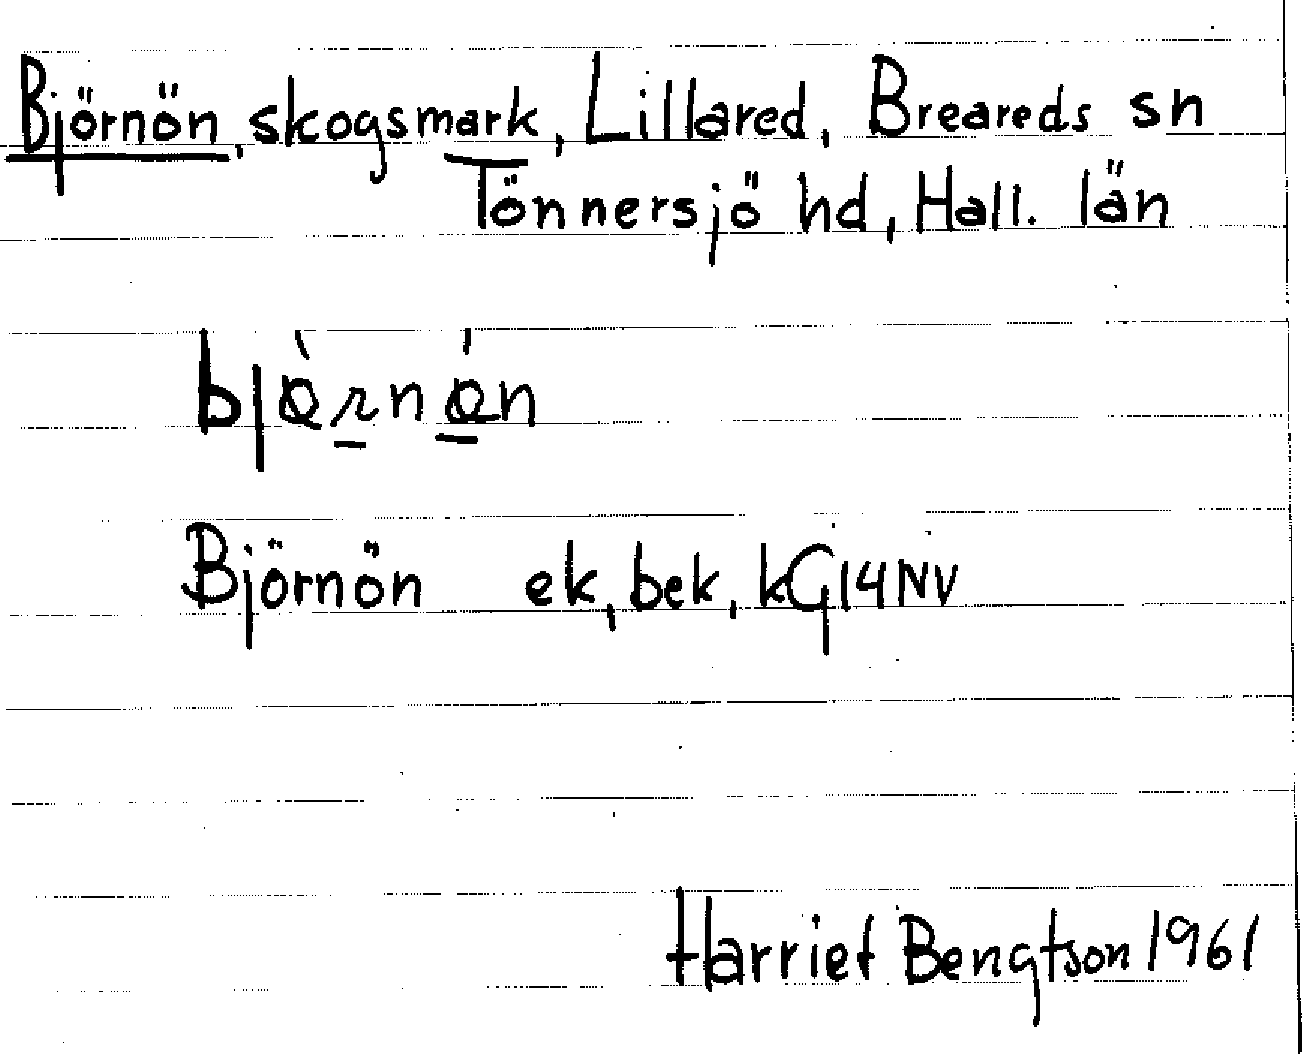 Björnön, skogsmark, Lillared, Breareds sn
Tönnersjö hd, Hall. län
Björnön ek, bek, kG14NV
Harriet Bengtson 1961